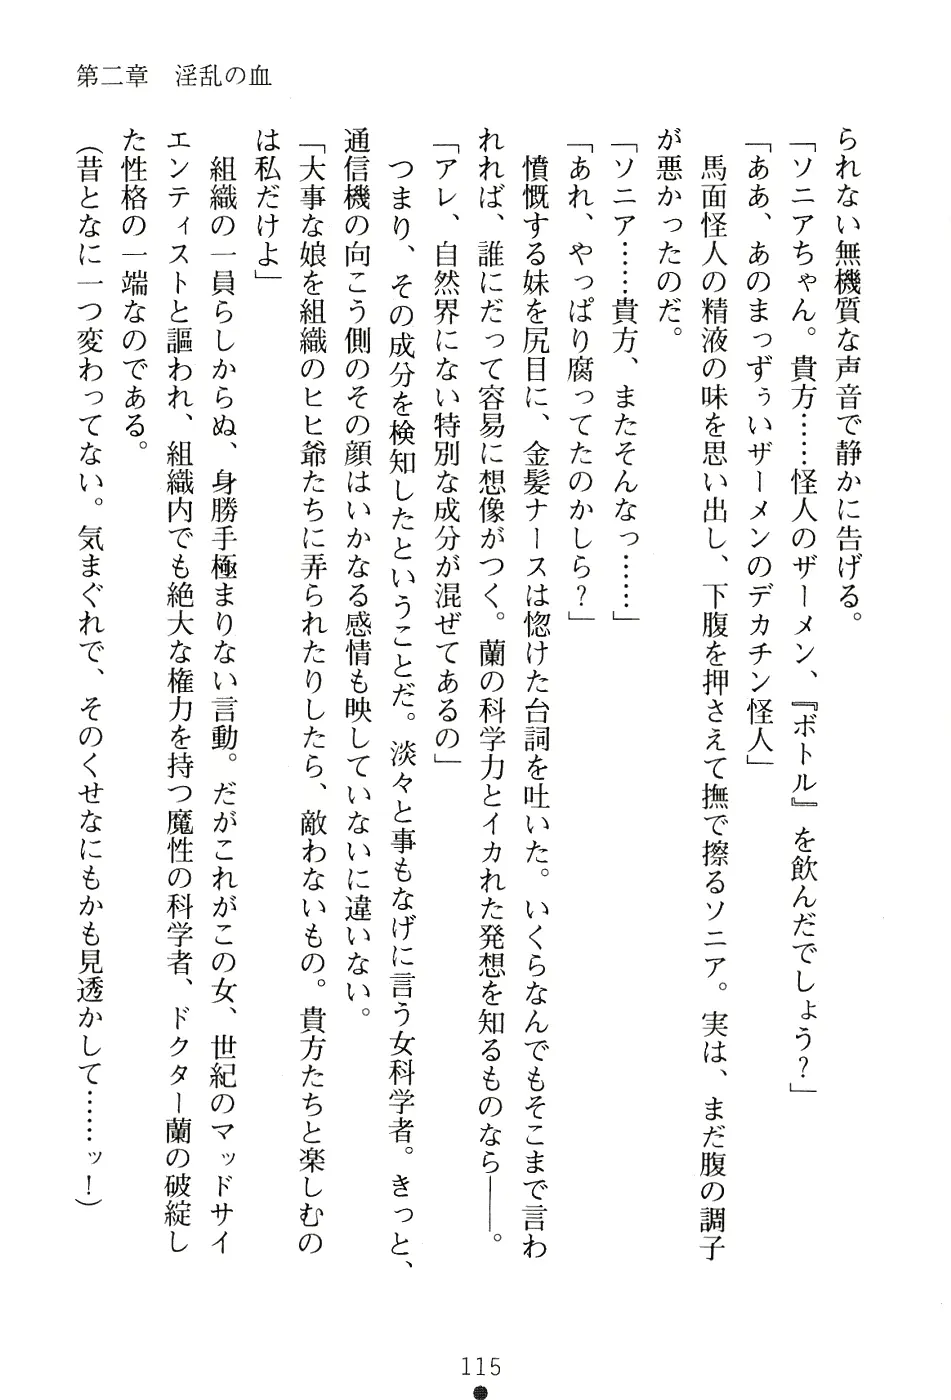 第二章　淫乱の血
られない無機質な声音で静かに告げる。
「ソニアちゃん。貴方……怪人のザーメン、『ボトル』を飲んだでしょう？」
「ああ、あのまっずぅいザーメンのデカチン怪人」
　馬面怪人の精液の味を思い出し、下腹を押さえて撫で擦るソニア。実は、まだ腹の調子
が悪かったのだ。
「ソニア……貴方、またそんなっ……」
「あれ、やっぱり腐ってたのかしら？」
　憤慨する妹を尻目に、金髪ナースは惚けた台詞を吐いた。いくらなんでもそこまで言わ
れれば、誰にだって容易に想像がつく。蘭の科学力とイカれた発想を知るものなら――。
「アレ、自然界にない特別な成分が混ぜてあるの」
　つまり、その成分を検知したということだ。淡々と事もなげに言う女科学者。きっと、
通信機の向こう側のその顔はいかなる感情も映していないに違いない。
「大事な娘を組織のヒヒ爺たちに弄られたりしたら、敵わないもの。貴方たちと楽しむの
は私だけよ」
　組織の一員らしからぬ、身勝手極まりない言動。だがこれがこの女、世紀のマッドサイ
エンティストと謳われ、組織内でも絶大な権力を持つ魔性の科学者、ドクター蘭の破綻し
た性格の一端なのである。
（昔となに一つ変わってない。気まぐれで、そのくせなにもかも見透かして……ッ！）
115